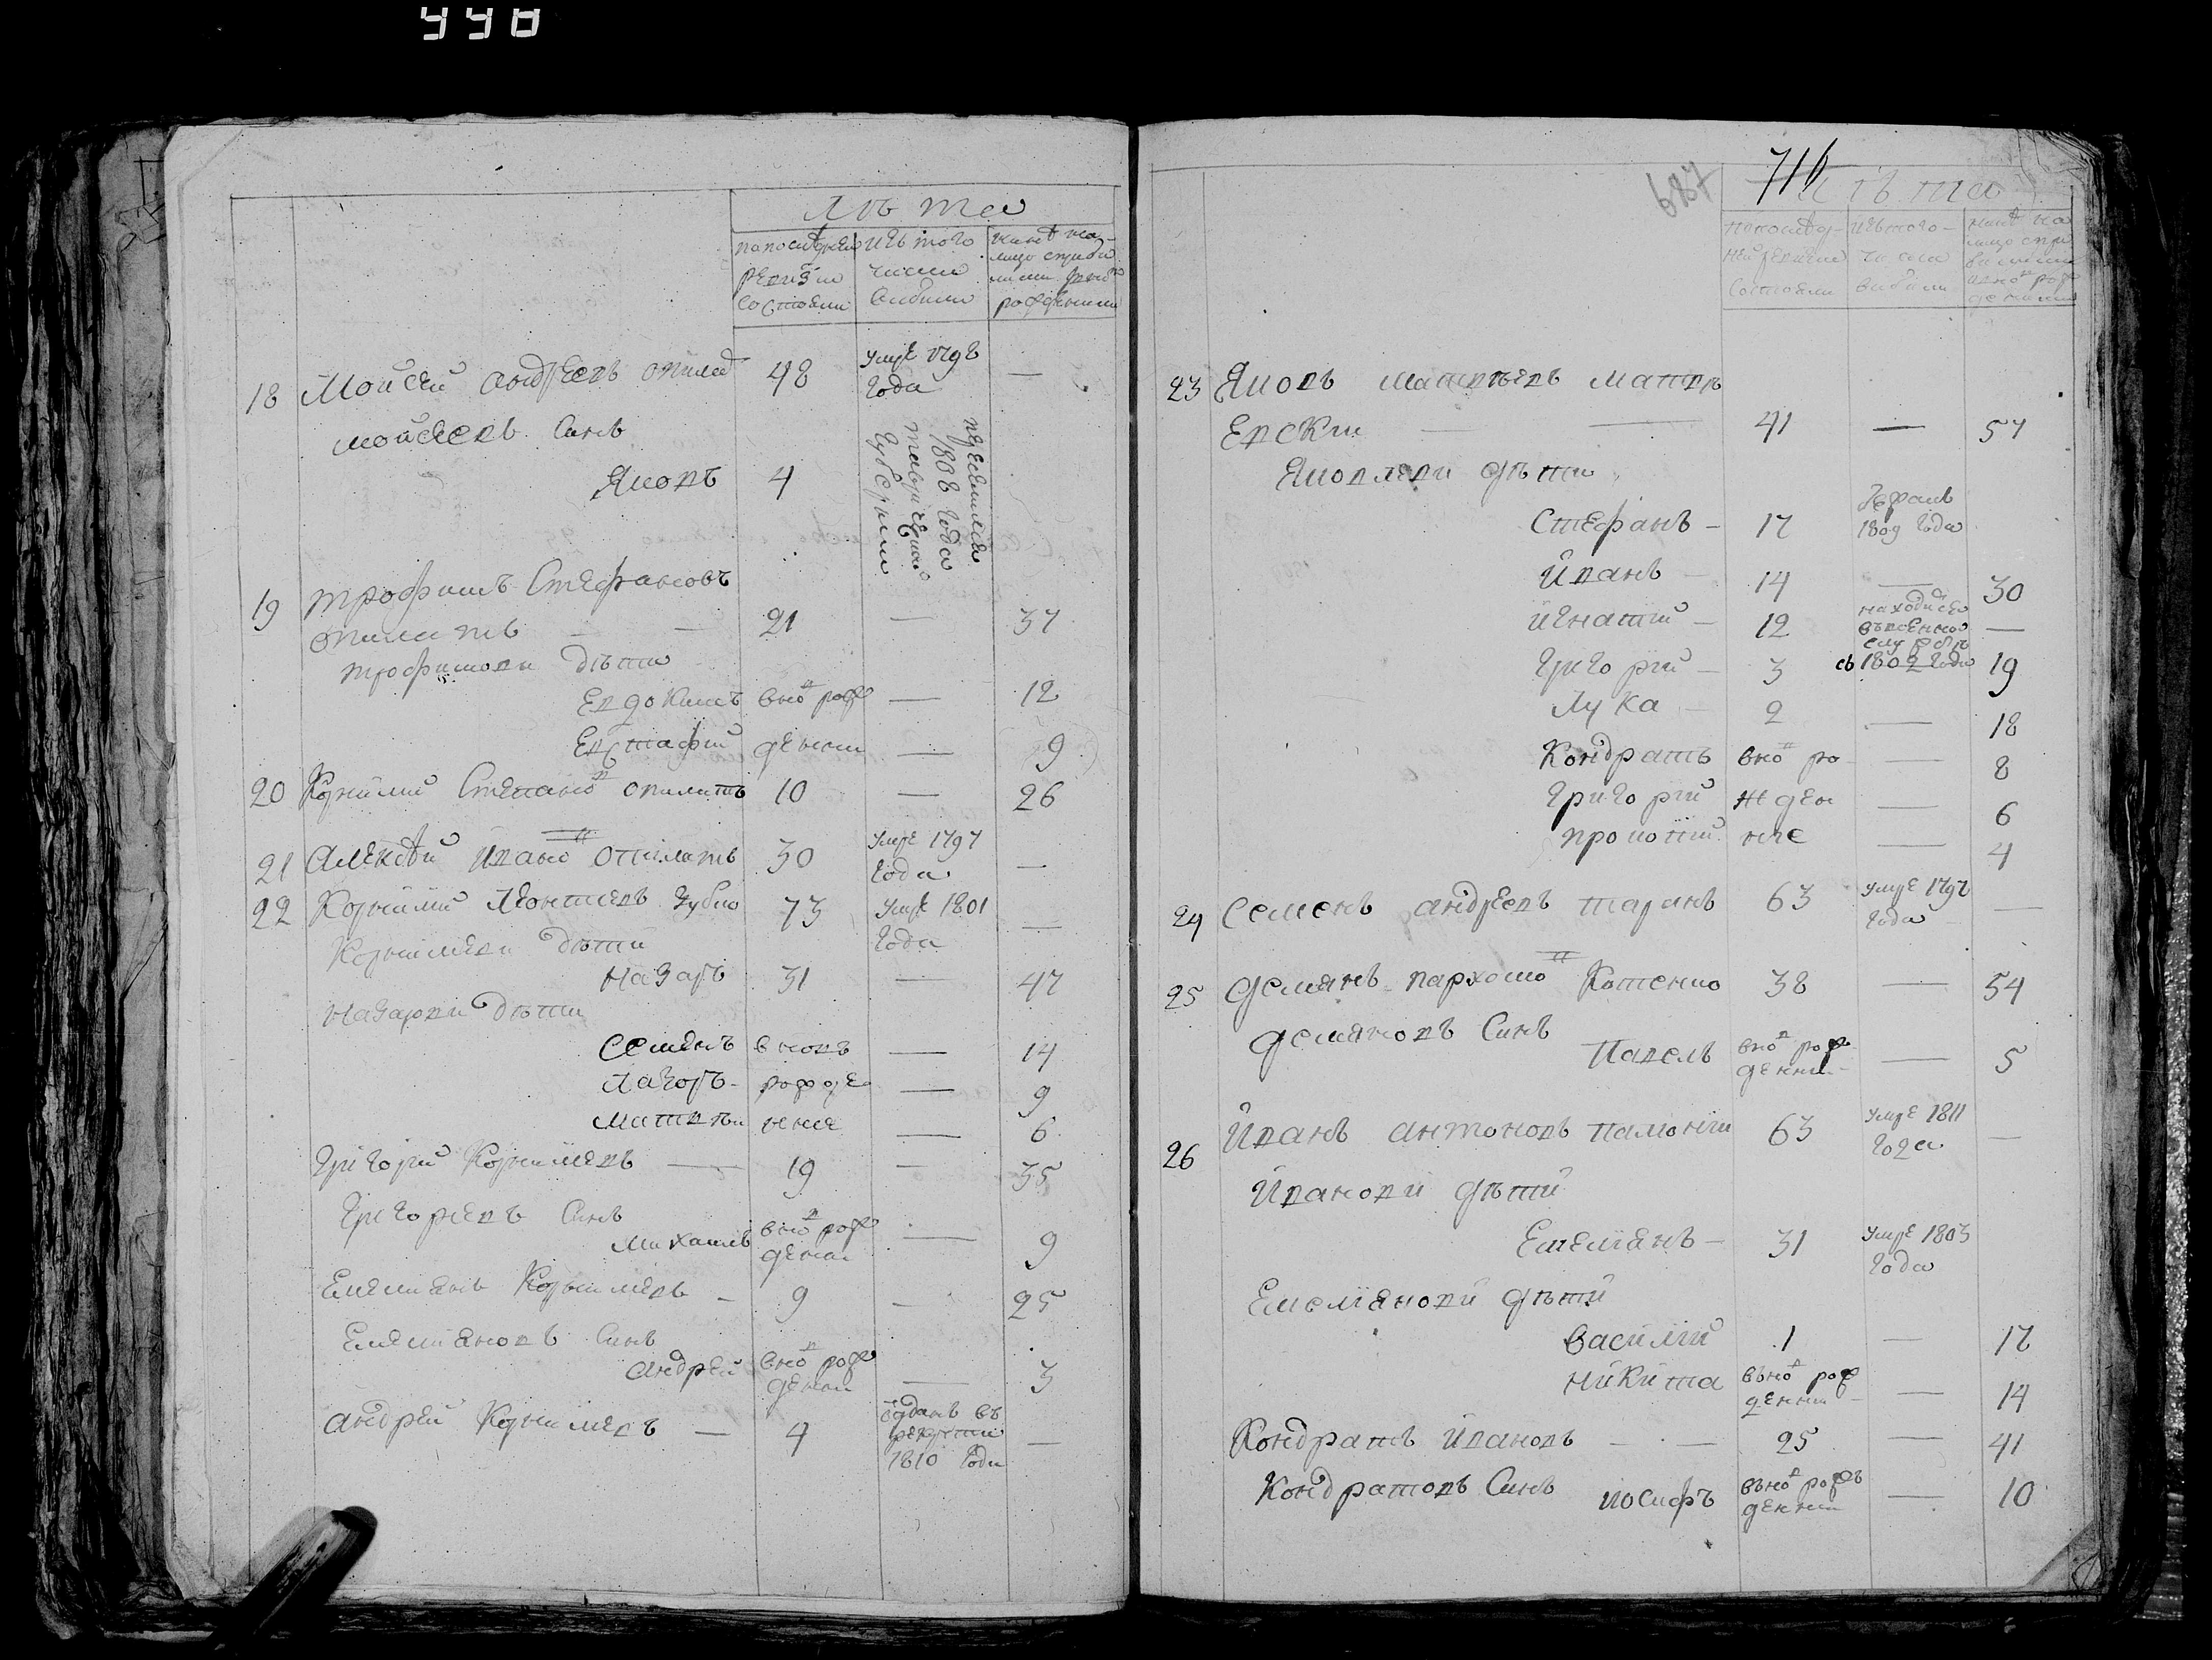 998
Лѣта
по последней
ревизии
состояли
изъ того
числа
выбыли
ныне на
лицо
18 Мойсей Андреевъ Опилат 48 умре 1798 —
года
Мойсеевъ синъ
Яковъ 4 переселился
1808 года
Таврической
губернии
19 Трофимъ Стефановъ
Опилатъ — — 21 — 37
Трофимови дѣти
Евдокимъ вновъ рож — 12
Евстафий денни — 9
20 Корнилий Степановъ Опилатъ 10 — 26
21 Алексѣй Ивановъ Опилатъ 30 умре 1797 —
года
22 Корнилий Леонтиевъ Зубко 73 умре 1801 —
года
Корнилиеви дѣти
Назаръ 31 — 47
Назарови дѣти
Семенъ вновъ — 14
Лазоръ - рожде — 9
Матвѣй ния — 6
Григорий Корнилиевъ — 19 — 35
Григориевъ синъ
Михаилъ вновъ рож — 9
денни
Емелиянъ Корнилиевъ — 9 — 25
Емелияновъ синъ
Андрей вновъ рож — 3
денни
Андрей Корнилиевъ — 4 отданъ въ —
рекруты
1810 года
687
716
Лѣта
по послед-
ней ревизии
состояли
изъ того
числа
выбыли
ныне на
лицо
23 Яковъ Матвѣевъ Матвѣ
евский — — 41 — 57
Яковлеви дѣти
Стефанъ — 17
1809 года
Иванъ — 14 — 30
Игнатий — 12 находится —
въ военной
службѣ
съ 1802 года
Григорий — 3 19
Лука — 2 — 18
Кондратъ внов ро — 8
Григорий жден — 6
Прокопий ние — 4
24 Семенъ Андреевъ Таранъ 63 умре 1797 —
года
25 Демянъ Пархомовъ Котенко 38 — 54
Демяновъ синъ
Павелъ вновъ рож — 5
денни
26 Иванъ Антоновъ 63 умре 1811 —
года
Иванови дѣти
Емелиянъ — 31 умре 1803
года
Емелиянови дѣти
Василий 1 — 17
Никита вьновъ рож — 14
денни
Кондратъ Ивановъ — — 25 — 41
Кондратовъ синъ Иосифъ вьновъ рож — 10
денни